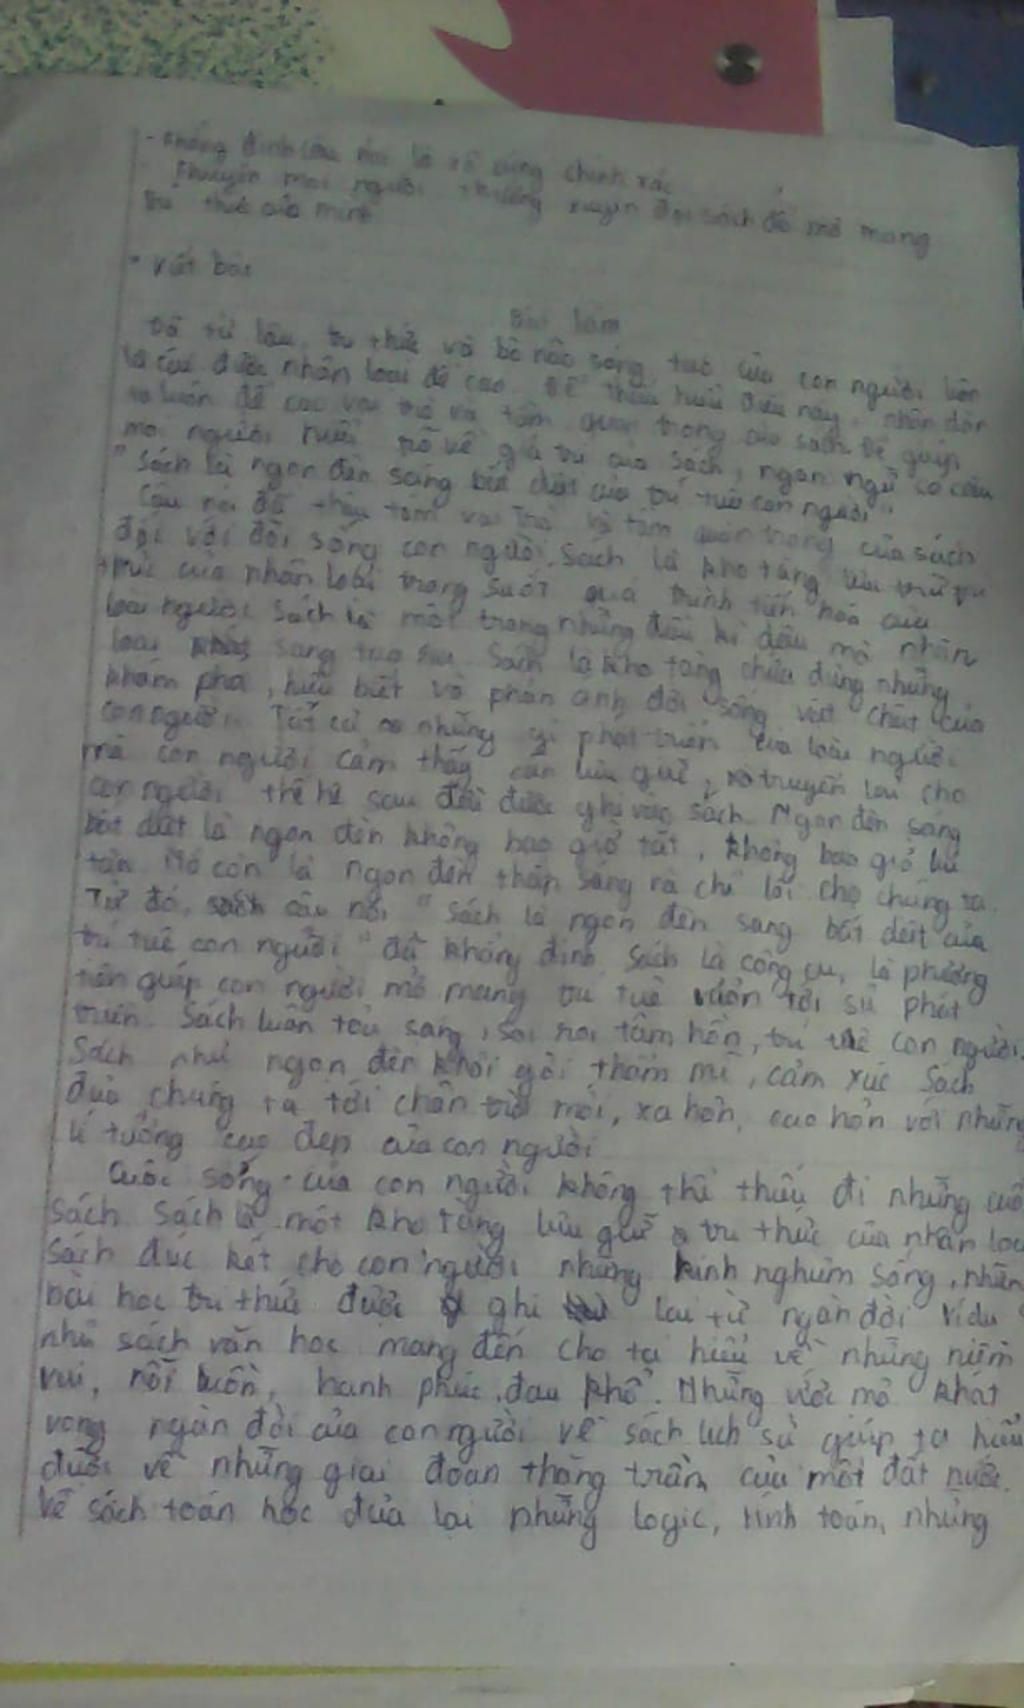 - Khẳng định câu nói là vô cùng chính xác
- Khuyên mọi người thường xuyên đọc sách để mở mang
tri thức của mình
* Viết bài
Bài làm
Đã từ lâu, tri thức và bộ não sáng tạo của con người luôn
là cái được nhân loại đề cao. Để thấu hiểu điều này, nhân dân
ta luôn đề cao vai trò và tầm quan trọng của sách. Để giúp
mọi người hiểu rõ về giá trị của sách, ngạn ngữ có câu
"Sách là ngọn đèn sáng bất diệt của trí tuệ con người"
Câu nói đã thấy tầm vai trò và tầm quan trọng của sách
đối với đời sống con người. Sách là kho tàng lưu trữ tri
thức của nhân loại trong suốt quá trình tiến hóa của
loài người. Sách là một trong những điều kì diệu mà nhân
loại sáng tạo ra. Sách là kho tàng chứa đựng những
khám phá, hiểu biết và phản ánh đời sống vật chất của
con người. Tất cả những gì phát triển của loài người
mà con người cảm thấy cần lưu giữ, và truyền lại cho
con người thế hệ sau đều được ghi vào sách. Ngọn đèn sáng
bất diệt là ngọn đèn không bao giờ tắt, không bao giờ lụi
tàn. Nó còn là ngọn đèn thắp sáng và chỉ lối cho chúng ta.
Từ đó, câu nói "Sách là ngọn đèn sáng bất diệt của
trí tuệ con người" đã khẳng định. Sách là công cụ, là phương
tiện giúp con người mở mang trí tuệ vươn tới sự phát
triển. Sách luôn tỏa sáng, soi rọi tâm hồn, trí tuệ con người.
Sách như ngọn đèn khơi gợi thẩm mĩ, cảm xúc. Sách
đưa chúng ta tới chân trời mới, xa hơn, cao hơn với những
lí tưởng cao đẹp của con người.
Cuộc sống của con người không thể thiếu đi những cuốn
sách. Sách là một kho tàng lưu giữ tri thức của nhân loại
Sách đúc kết cho con người những kinh nghiệm sống, những
bài học tri thức được ghi lại từ ngàn đời. Ví dụ
như sách văn học mang đến cho ta hiểu về những niềm
vui, nỗi buồn, hạnh phúc, đau khổ. Những ước mơ khát
vọng ngàn đời của con người. Về sách lịch sử giúp ta hiểu
được về những giai đoạn thăng trầm của một đất nước.
Về sách toán học đưa lại những logic, tính toán, những